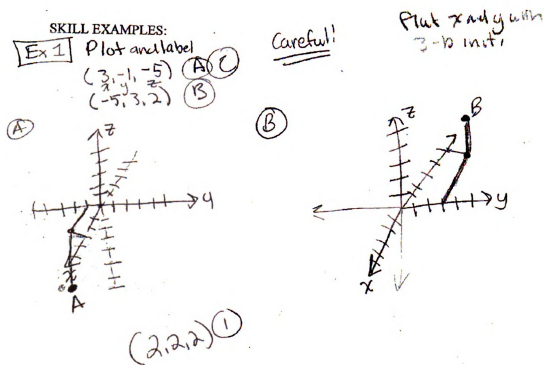 SKILL EXAMPLES:
Ex 1 Plot and label
(3, -1, -5) A C
x y z
(-5, 3, 2) B
Careful!
Plot x and y with
3-D
A
z
y
x
A
B
z
B
y
x
(2,2,2) 1